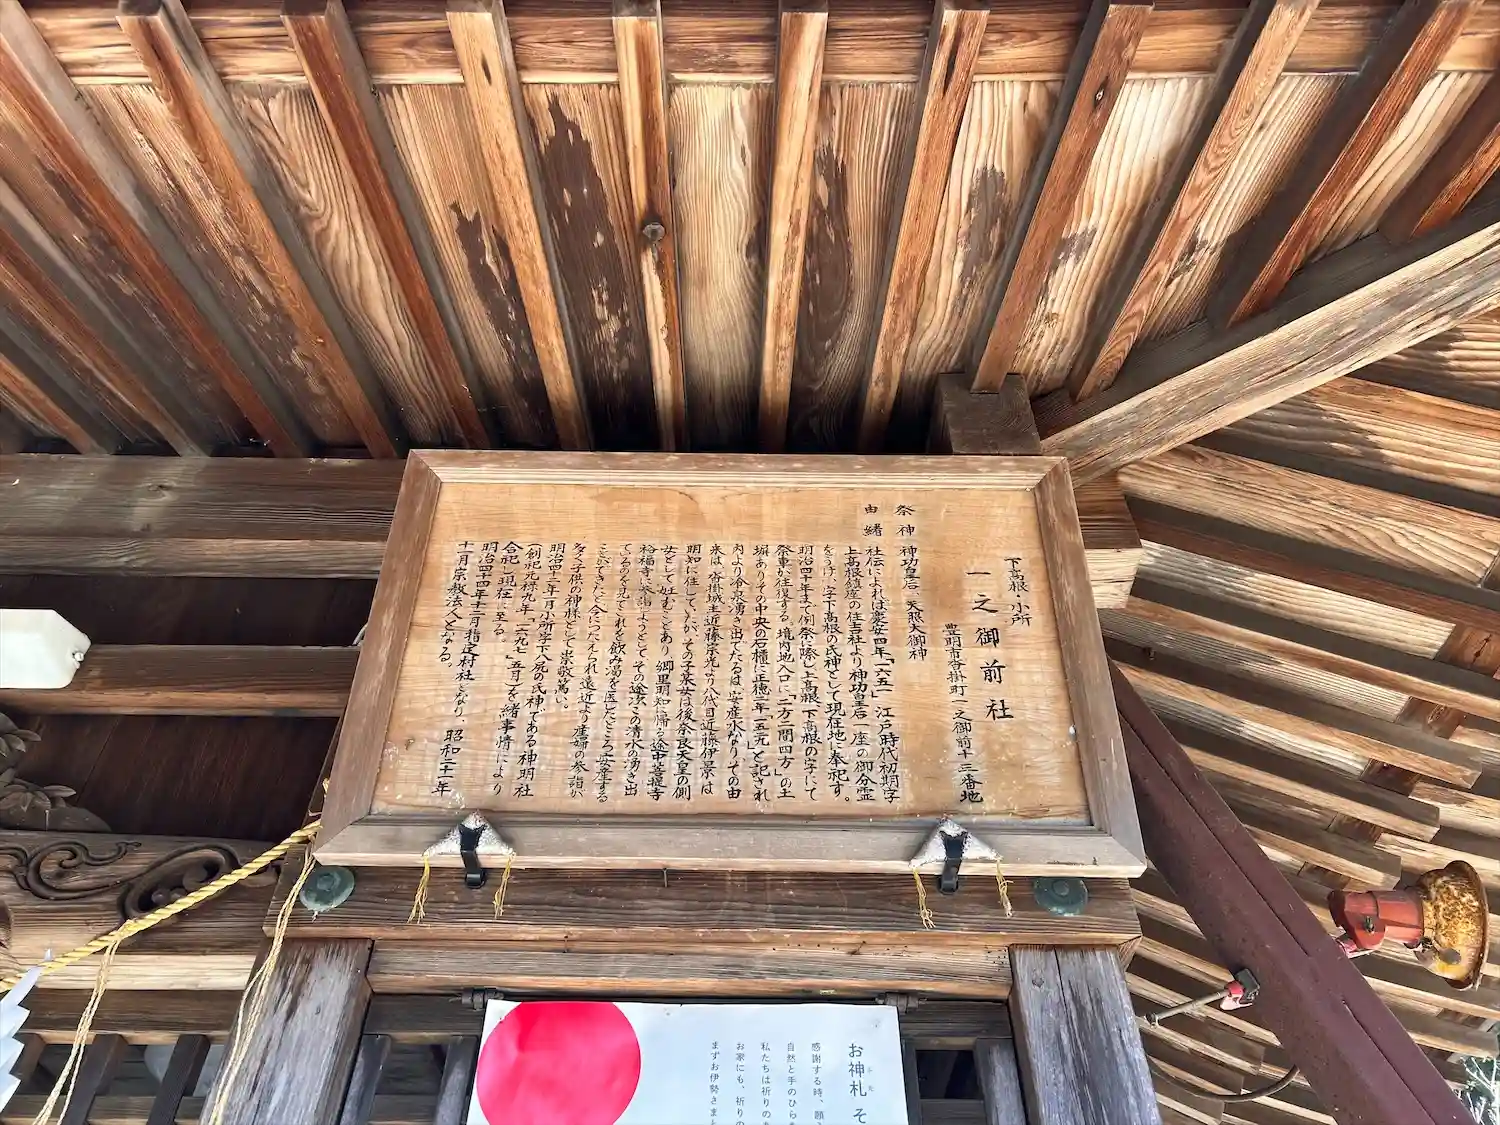 下高根・小所
一之御前社
豊明市沓掛町一之御前十三番地
祭神 神功皇后、天照大御神
由緒 社伝によれば慶安四年「一六五一」江戸時代初期字
上高根鎮座の住吉社より神功皇后一座の御分霊
をうけ、字下高根の氏神として現在地に奉祀す。
明治四十年まで例祭に際し上高根、下高根の字にて
祭車が往復する。境内地入口に「二方二間四方」の土
堀ありその中央の石櫃に正徳二年「一五一九」と記され
内より冷泉湧き出てたるは、安産水なりその由
来は、沓掛城主近藤宗光より八代目近藤伊景は
明知に住していたが、その子某女は後奈良天皇の側
女として妊むことあり、郷里明知に帰る途中菩提寺
裕福寺に参詣しようとしてその途次この清水の湧き出
ているのを見てこれを飲み渇を医したところ安産する
ことができたと今につたえられ遠近より産婦の参詣が
多く子供の神様として崇敬篤い。
明治四十二年一月小所字下入尻の氏神である神明社
(創祀元禄九年「一六九七」五月)を緒事情により
合祀し現在に至る。
明治四十四年十二月指定村社となり、昭和二十一年
十一月宗教法人となる。
お神札 そ
感謝する時、願
自然と手のひら
私たちは祈りの
お家にも、祈りの
まずお伊勢さま